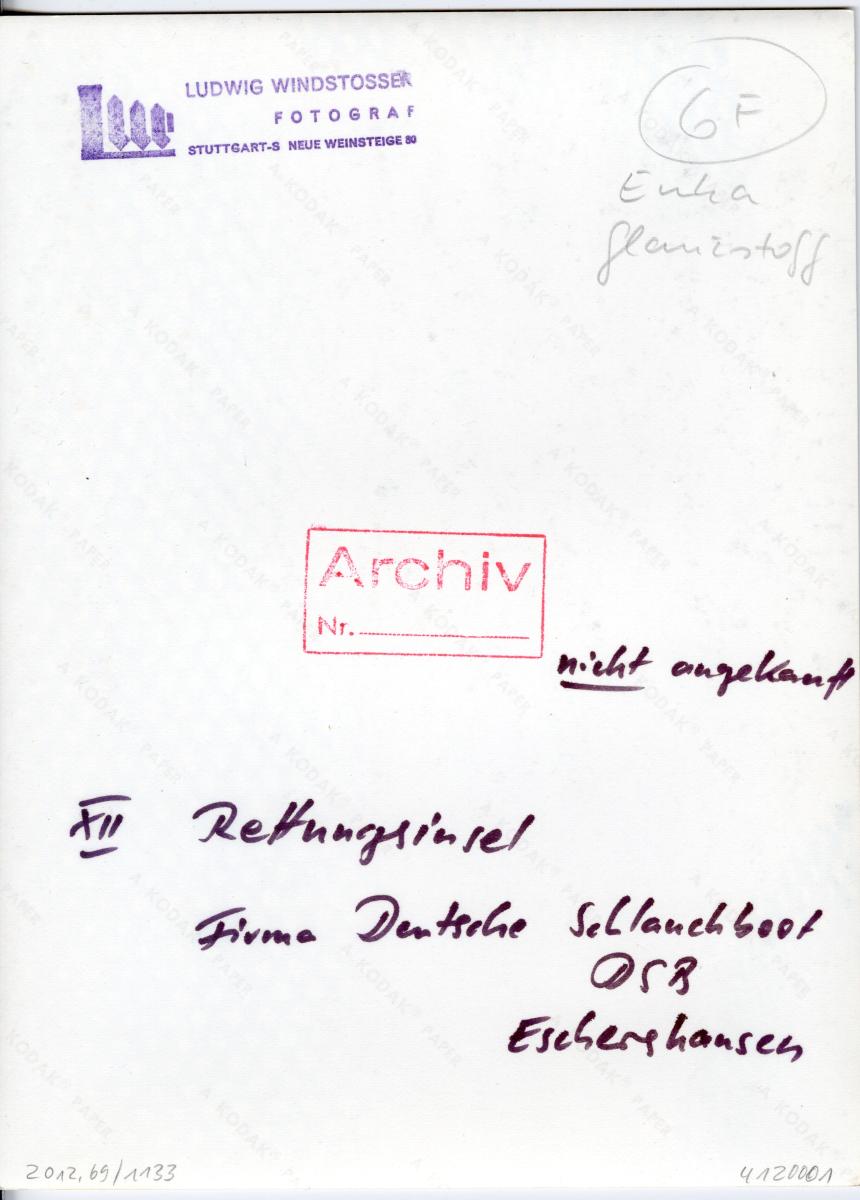 LUDWIG WINDSTOSSER
FOTOGRAF
STUTTGART-S NEUE WEINSTEIGE 80
6F
Enka
Glanzstoff
Archiv
Nr.
nicht angekauft
XII Rettungsinsel
Firma Deutsche Schlauchboot
DSB
Eschershausen
2012.69/1133
4120001
A KODAK® PAPER